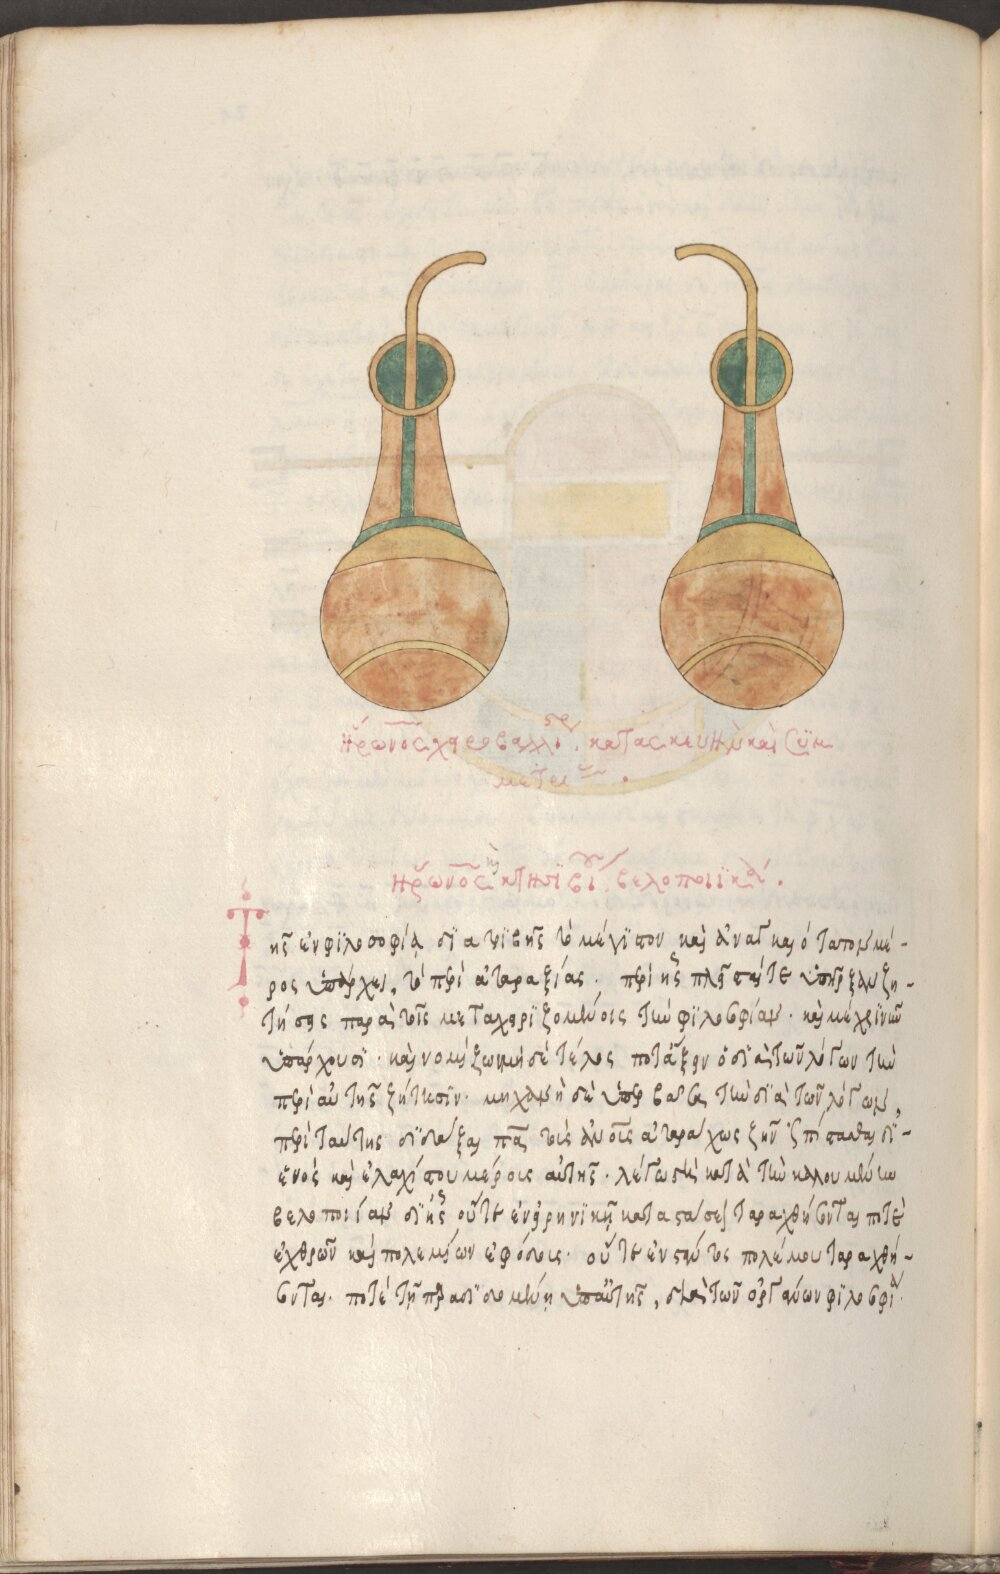 Ἥρωνος χειροβαλλίστρας κατασκευὴ καὶ συμ
μετρία.
Ἥρωνος κτησιβίου βελοποιϊκά.
Τῆς ἐν φιλοσοφίᾳ διατριβῆς τὸ μέγιστον καὶ ἀναγκαιότατον μέ-
ρος ὑπάρχει, τὸ περὶ ἀταραξίας. περὶ ἧς πλεῖσταί τε ὑπῆρξαν ζη-
τήσεις παρὰ τοῖς μεταχειριζομένοις τὴν φιλοσοφίαν. καὶ μέχρι νῦν
ὑπάρχουσι. καὶ νομίζω μηδὲ τέλος ποτὲ ἕξειν διὰ τῶν λόγων τὴν
περὶ αὐτῆς ζήτησιν. μηχανὴ δὲ ὑπερβᾶσα τὴν διὰ τῶν λόγων,
περὶ ταύτης διδαξαι πάντας ἀνθρώπους ἀταράχως ζῆν ἐπίστασθαι δι'
ἑνὸς καὶ ἐλαχίστου μέρους αὐτῆς. λέγω δὴ κατὰ τὴν καλουμένην
βελοποιίαν δι' ἧς οὔτε ἐν εἰρηνικῇ καταστάσει ταραχθήσονται ποτὲ
ἐχθρῶν καὶ πολεμίων ἐφόδοις. οὔτε ἐνστάντος πολέμου ταραχθή-
σονται. ποτὲ τῇ παραδιδομένῃ ὑπ' αὐτῆς, διὰ τῶν ὀργάνων φιλοσοφίᾳ.